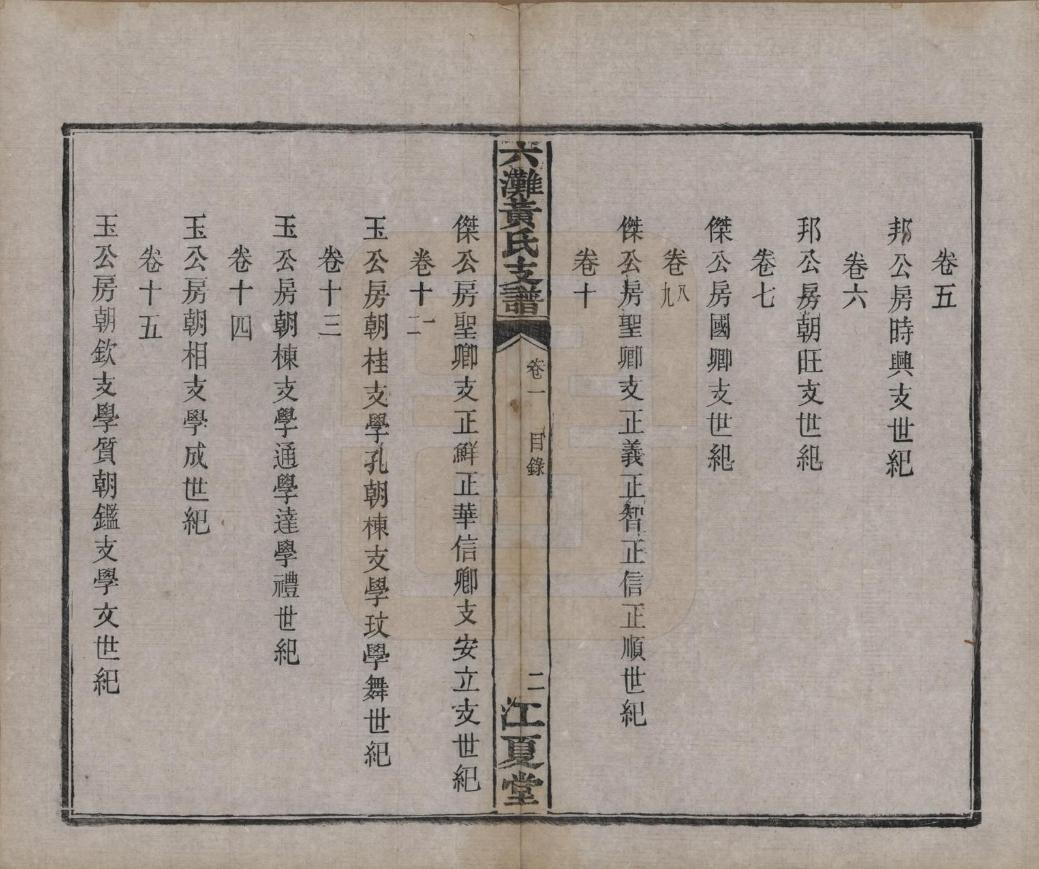 卷五
邦公房時興支世紀
卷六
邦公房朝旺支世紀
卷七
傑公房國卿支世紀
卷八九
傑公房聖卿支正義正智正信正順世紀
卷十
六灘黃氏支譜
卷一
目錄
二
江夏堂
傑公房聖卿支正鮮正華信卿支安立支世紀
卷十一二
玉公房朝桂支學孔朝棟支學玟學舞世紀
卷十三
玉公房朝棟支學通學達學禮世紀
卷十四
玉公房朝相支學成世紀
卷十五
玉公房朝欽支學質朝鑑支學文世紀